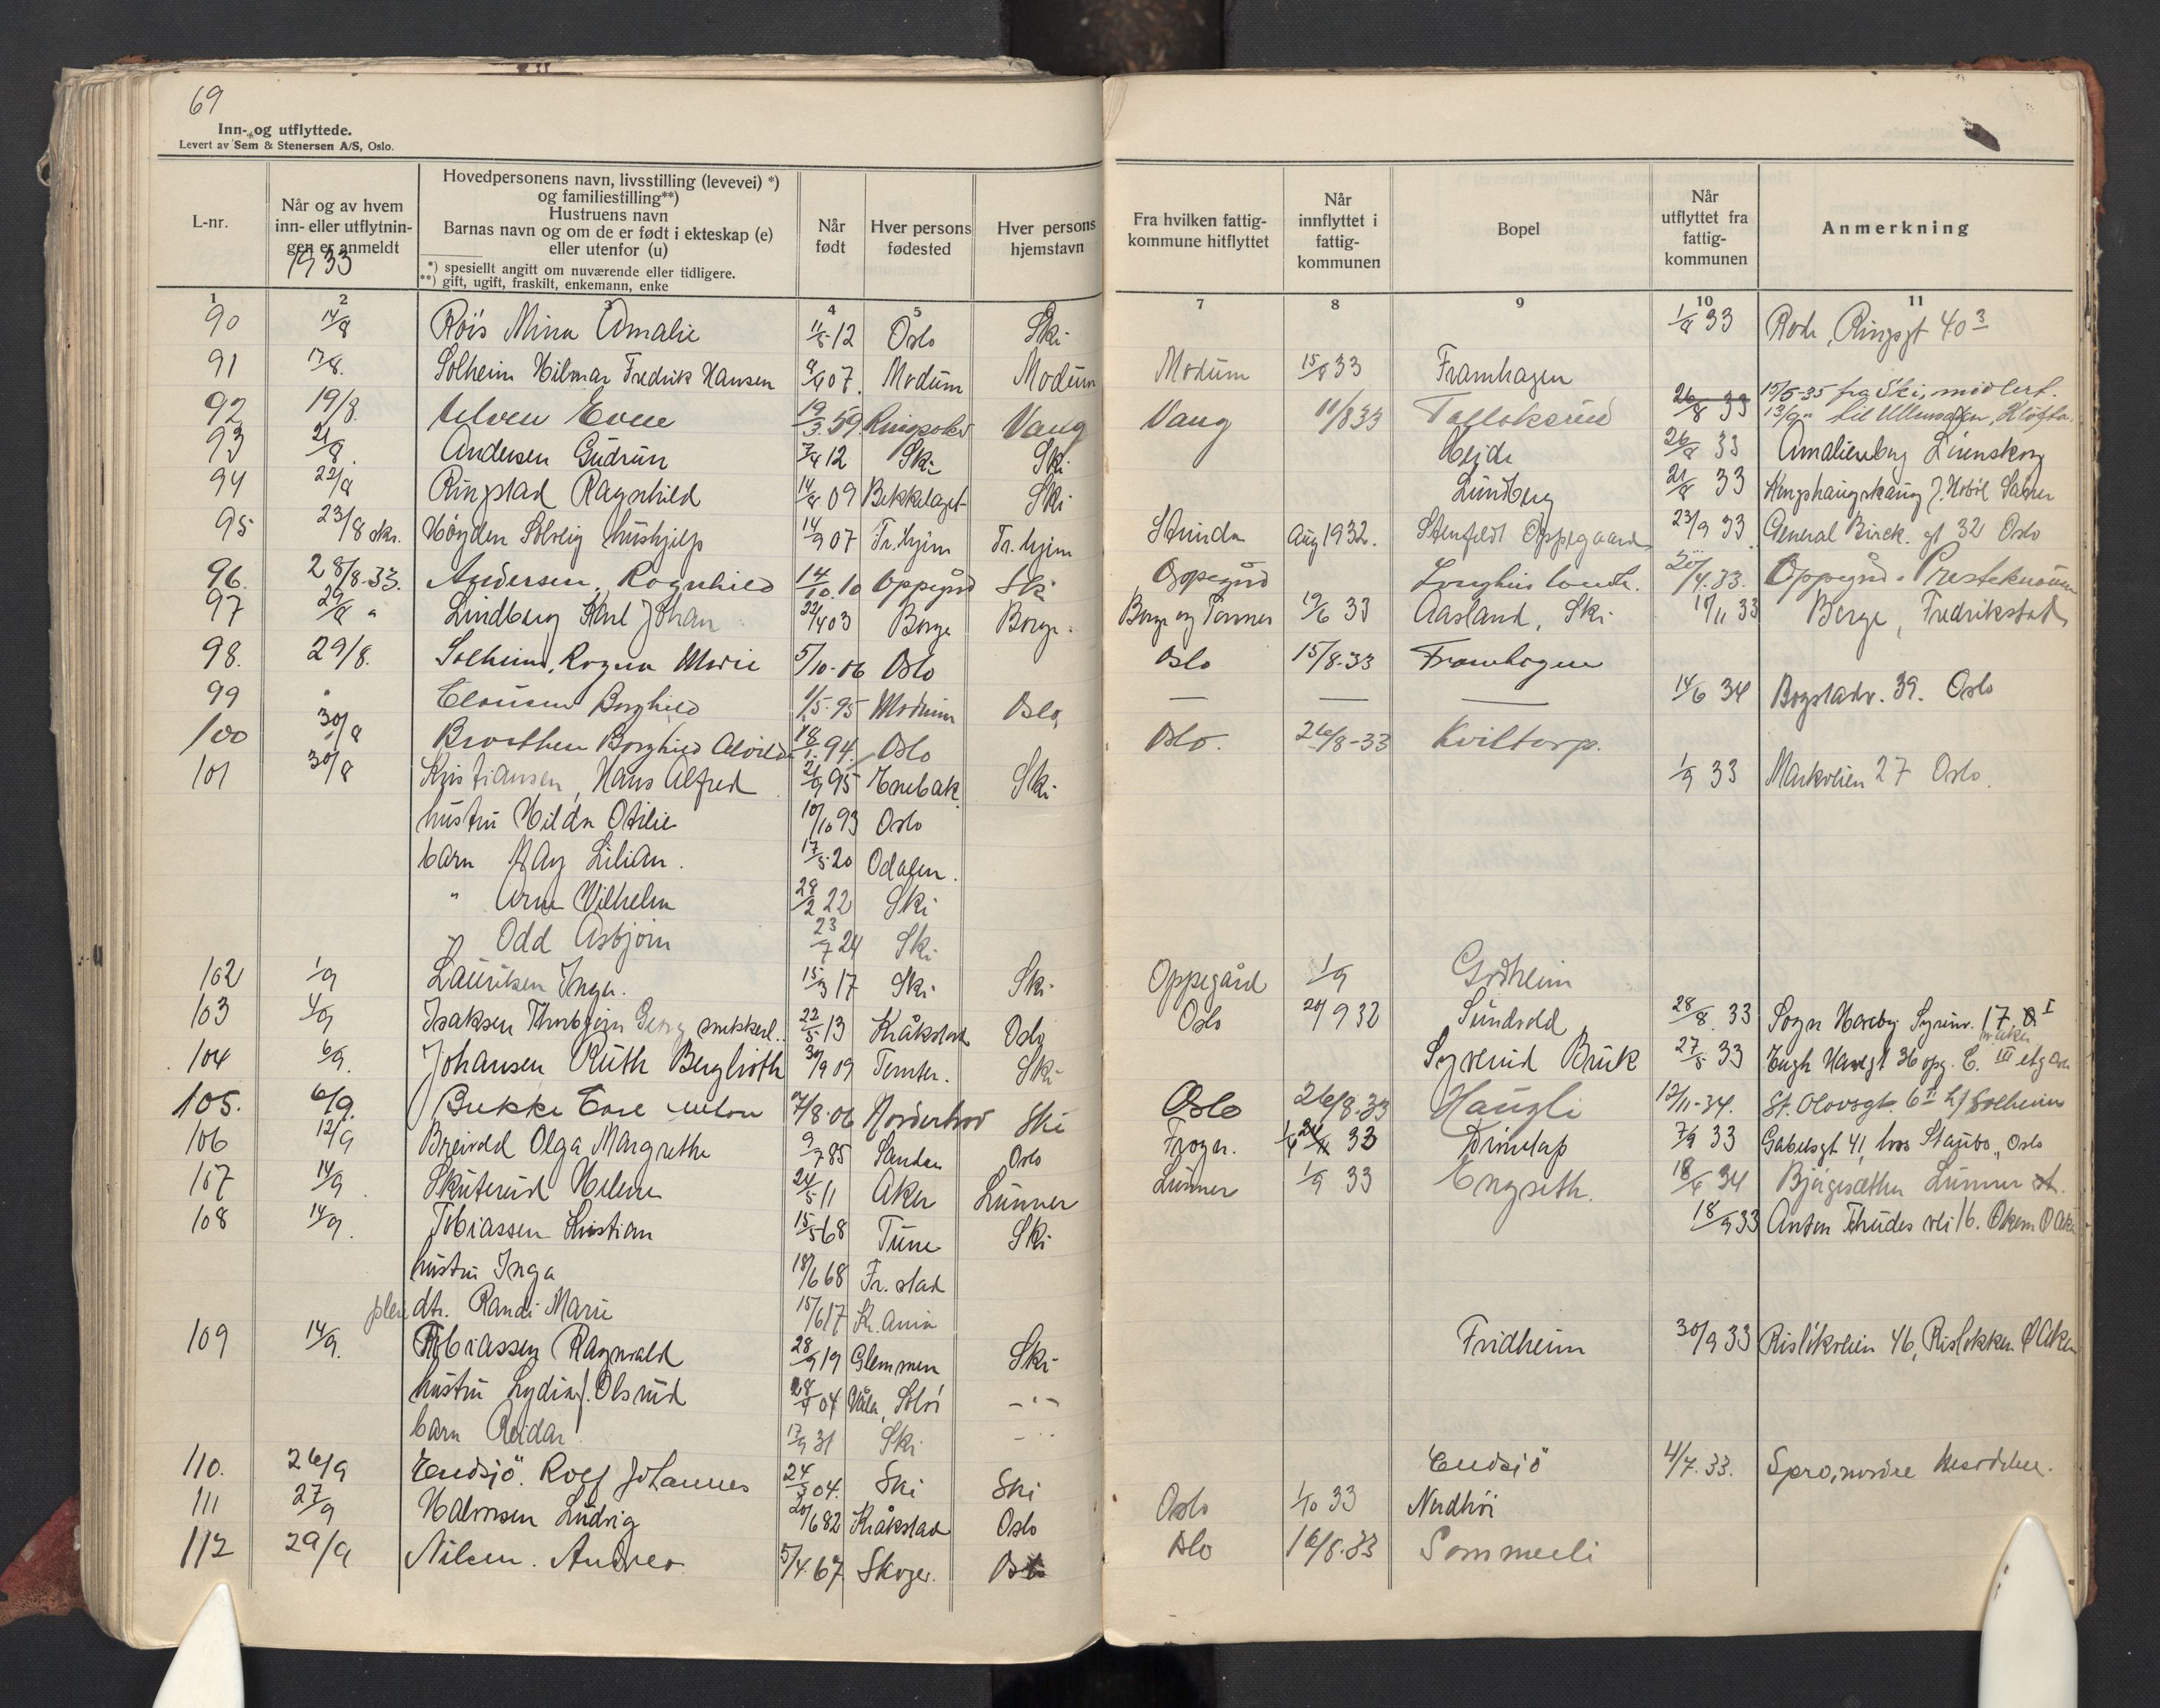 69
Inn- og utflyttede.
Levert av Sem & Stenersen A/S, Oslo.
L-nr.
Når og av hvem inn- eller utflytningen er anmeldt
1933
Hovedpersonens navn, livsstilling (levevei) *)
og familiestilling**)
Hustruens navn
Barnas navn og om de er født i ekteskap (e)
eller utenfor (u)
*) spesiellt angitt om nuværende eller tidligere.
**) gift, ugift, fraskilt, enkemann, enke
Når født
Hver persons fødested
Hver persons hjemstavn
Fra hvilken fattigkommune hitflyttet
Når innflyttet i fattigkommunen
Bopel
Når utflyttet fra fattigkommunen
Anmerkning
1 2 3 4 5 7 8 9 10 11
90 14/8 Röis Mina Amalie 11/5 12 Oslo Ski 1/8 33 Ringsgt 40 3
91 17/8. Solheim Hilmar Fredrik Hansen 9/4 07. Modum Modum Modum 15/8 33 Framhagen
92 19/8. 19/3.59. Vang Vang 11/8 33 26/8 33 15/5-35 fra Ski, midlert.
13/9 " til
93 21/8. Andersen Gudrun 7/4 12 Ski Ski Heide 26/8 33 Amalienborg Lörenskog
94 22/8 Ringstad Ragnhild 14/8 09 Bekkelaget Ski Lundberg 21/8 33
95 23/8 skr. Höyden Solveig hushjelp 14/9 07 Tr.hjem Tr.hjem Strinda Aug 1932. Stenfeldt Oppegaard 23/9 33 General Birck. gt 32 Oslo
96. 28/8.33. Andersen, Ragnhild 14/10.10 Oppegård Ski Oppegård Langhus 20/4.33. Oppegård
97 29/8 " Lindberg Karl Johan 22/4 03 Borge Borge. Borge og Torsnes 19/6 33 Aasland, Ski 17/11 33 Borge, Fredrikstad
98. 29/8. Solheim, Ragna Marie 5/10-06 Oslo Oslo 15/8-33 Framhagen
99 " Clausen Borghild 1/5-95 Modum Oslo — — — 14/6 34 Bogstadv. 39. Oslo
100 30/8 Borghild 18/1.94. Oslo Oslo. 26/8-33 Kviltorp.
101 30/8 Kristiansen, Hans Alfred 21/9 95 Enebak Ski 1/9 33 Markveien 27 Oslo.
hustru Hilda Otilie 10/10 93 Oslo
barn May Lilian. 17/5 20 Odalen.
" Arne Vilhelm 28/2 22 Ski
" Odd Asbjörn 23/7 24 Ski
102 1/9 Lauritsen Inga. 15/3 17 Ski Ski Oppegård 1/9 Godheim
103 4/9 Isaksen Thorbjörn Georg snekkerl. 22/5 13 Kråkstad Oslo Oslo 20/9 32 Sundvold 28/8. 33 Sogn Haveby Syrinv. 17 I
104 6/9. Johansen Ruth Berglioth 30/9 09 Tomter. Ski Syverud Bruk 27/5 33
105. 6/9. Bekke 7/8-06 Norderhov Ski Oslo 26/8-33 Haugli 12/11-34. St. Olavsgt. 6
106 12/9 Breivold Olga Margrethe 9/7 85 Sandar Oslo Frogn. 33 7/9 33 Gabelsgt 41, hos Oslo
107 14/9. Skuterud Helene 24/5 11 Aker Lunner Lunner 1/9 33 Engseth. 18/4 34 Lunner st.
108 14/9. Tobiassen Kristian 15/5 68 Tune Ski 18/9 33 Anton
hustru Inga 18/6 68 Fr. stad
pleiedtr. Randi Marie 15/6 17 Kr.ania
109 14/9. Tobiassen Ragnvald 28/9 19 Glemmen Ski Fridheim 30/9 33 Rislökveien 46, Rislökken Ö Aker
hustru Lydia f. Olsrud 28/4 04 Våler, Solör — " —
barn Reidar 17/9 31 Ski — " —
110. 26/9 Endsjö. Rolf Johannes 24/5 04. Ski Ski Endsjö 4/7.33. Spro, nordre Nesodden.
111 27/9 Halvorsen Ludvig 20/6 82 Kråkstad Oslo Oslo 1/10 33 Nordhöi
112 29/9 Nilsen. Andrea. 5/4.67. Skoger. Oslo Oslo 16/8.33 Sommerli